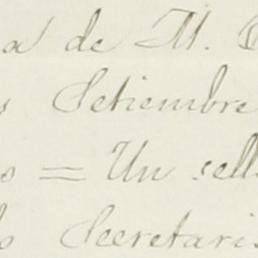 a de M.
Setiembre
= Un sell
Secretari